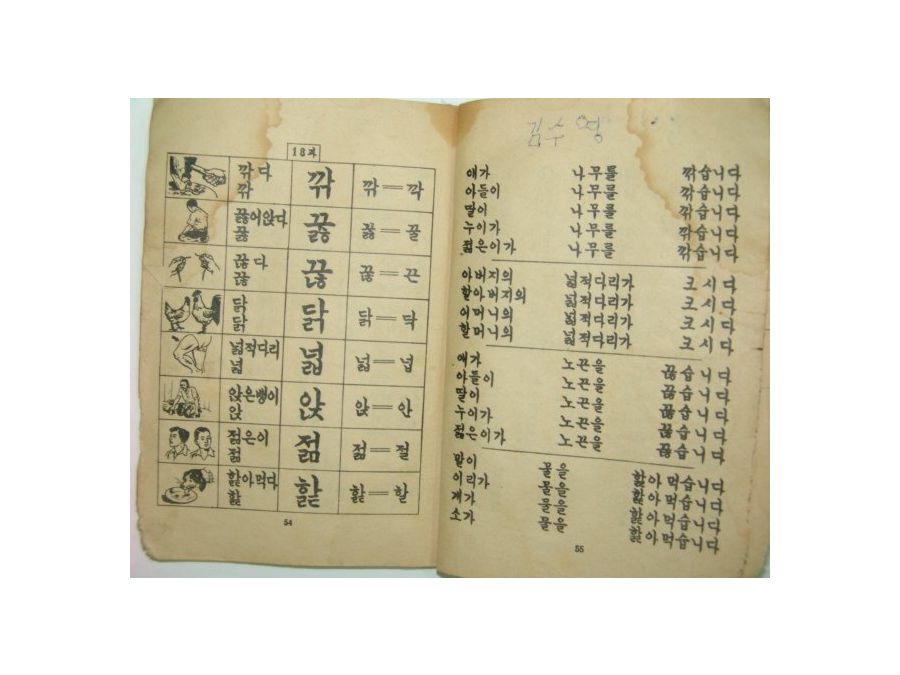 18과
깎다
깎 깎 깎=깍
꿇어앉다
꿇 꿇 꿇=꿀
끊다
끊 끊 끊=끈
닭
닭 닭 닭=닥
넓적다리
넓 넓 넓=넙
앉은뱅이
앉 앉 앉=안
젊은이
젊 젊 젊=절
핥아먹다
핥 핥 핥=할
54
김수영
애가 나무를 깎습니다
아들이 나무를 깎습니다
딸이 나무를 깎습니다
누이가 나무를 깎습니다
젊은이가 나무를 깎습니다
아버지의 넓적다리가 크시다
할아버지의 넓적다리가 크시다
어머니의 넓적다리가 크시다
할머니의 넓적다리가 크시다
애가 노끈을 끊습니다
아들이 노끈을 끊습니다
딸이 노끈을 끊습니다
누이가 노끈을 끊습니다
젊은이가 노끈을 끊습니다
말이 물을 핥아먹습니다
이리가 물을 핥아먹습니다
개가 물을 핥아먹습니다
소가 물을 핥아먹습니다
55